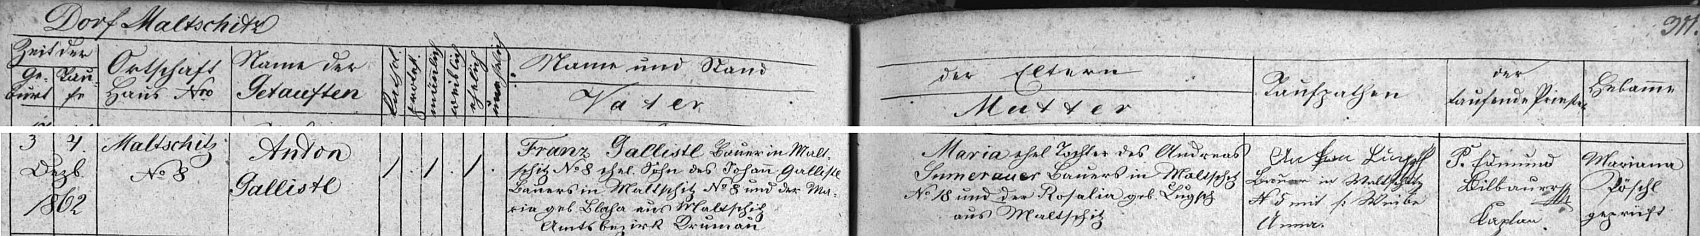 Dorf Maltschitz
317.
Zeit der
Ge-
burt
Tau-
fe
Ortschaft
Haus Nro
Name der
Getauften
Kathol.
protest.
männlich
weiblich
ehelich
unehelich
Name und Stand
Vater
der Eltern
Mutter
Taufpathen
der
taufende Priester
Hebamme
3 4.
Dezb
1862
Maltschitz
No 8
Anton
Gallistl
/ . / . / .
Franz Gallistl Bauer in Malt-
schitz No 8 ehel. Sohn des Johan Gallistl
Bauers in Maltschitz No 8 und der Ma-
ria geb. Blaha aus Maltschitz
Amtsbezirk Krumau
Maria ehel Tochter des Andreas
Sumerauer Bauers in Maltschitz
No 18 und der Rosalia geb. Lugsch
aus Maltschitz
Anton Lugsch
Bauer in Maltschitz
No 5 mit s. Weibe
Anna.
P. Edmund
Bilbauer
Kaplan
Mariana
Pöschl
geprüft